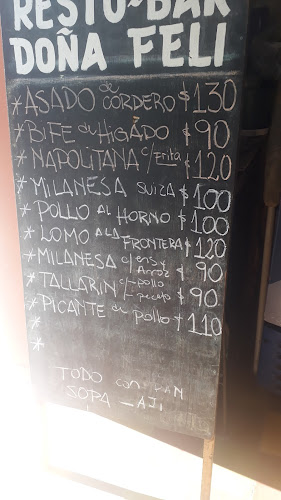 RESTO-BAR
DOÑA FELI
* ASADO de CORDERO $130
* BIFE de HIGADO $90
* NAPOLITANA c/Frita $120
* MILANESA SUIZA $100
* POLLO AL HORNO $100
* LOMO A LA FRONTERA $120
* MILANESA c/ens y Arroz $90
* TALLARIN c/pollo c/peceto $90
* PICANTE de pollo $110
*
*
TODO con PAN
SOPA - AJI